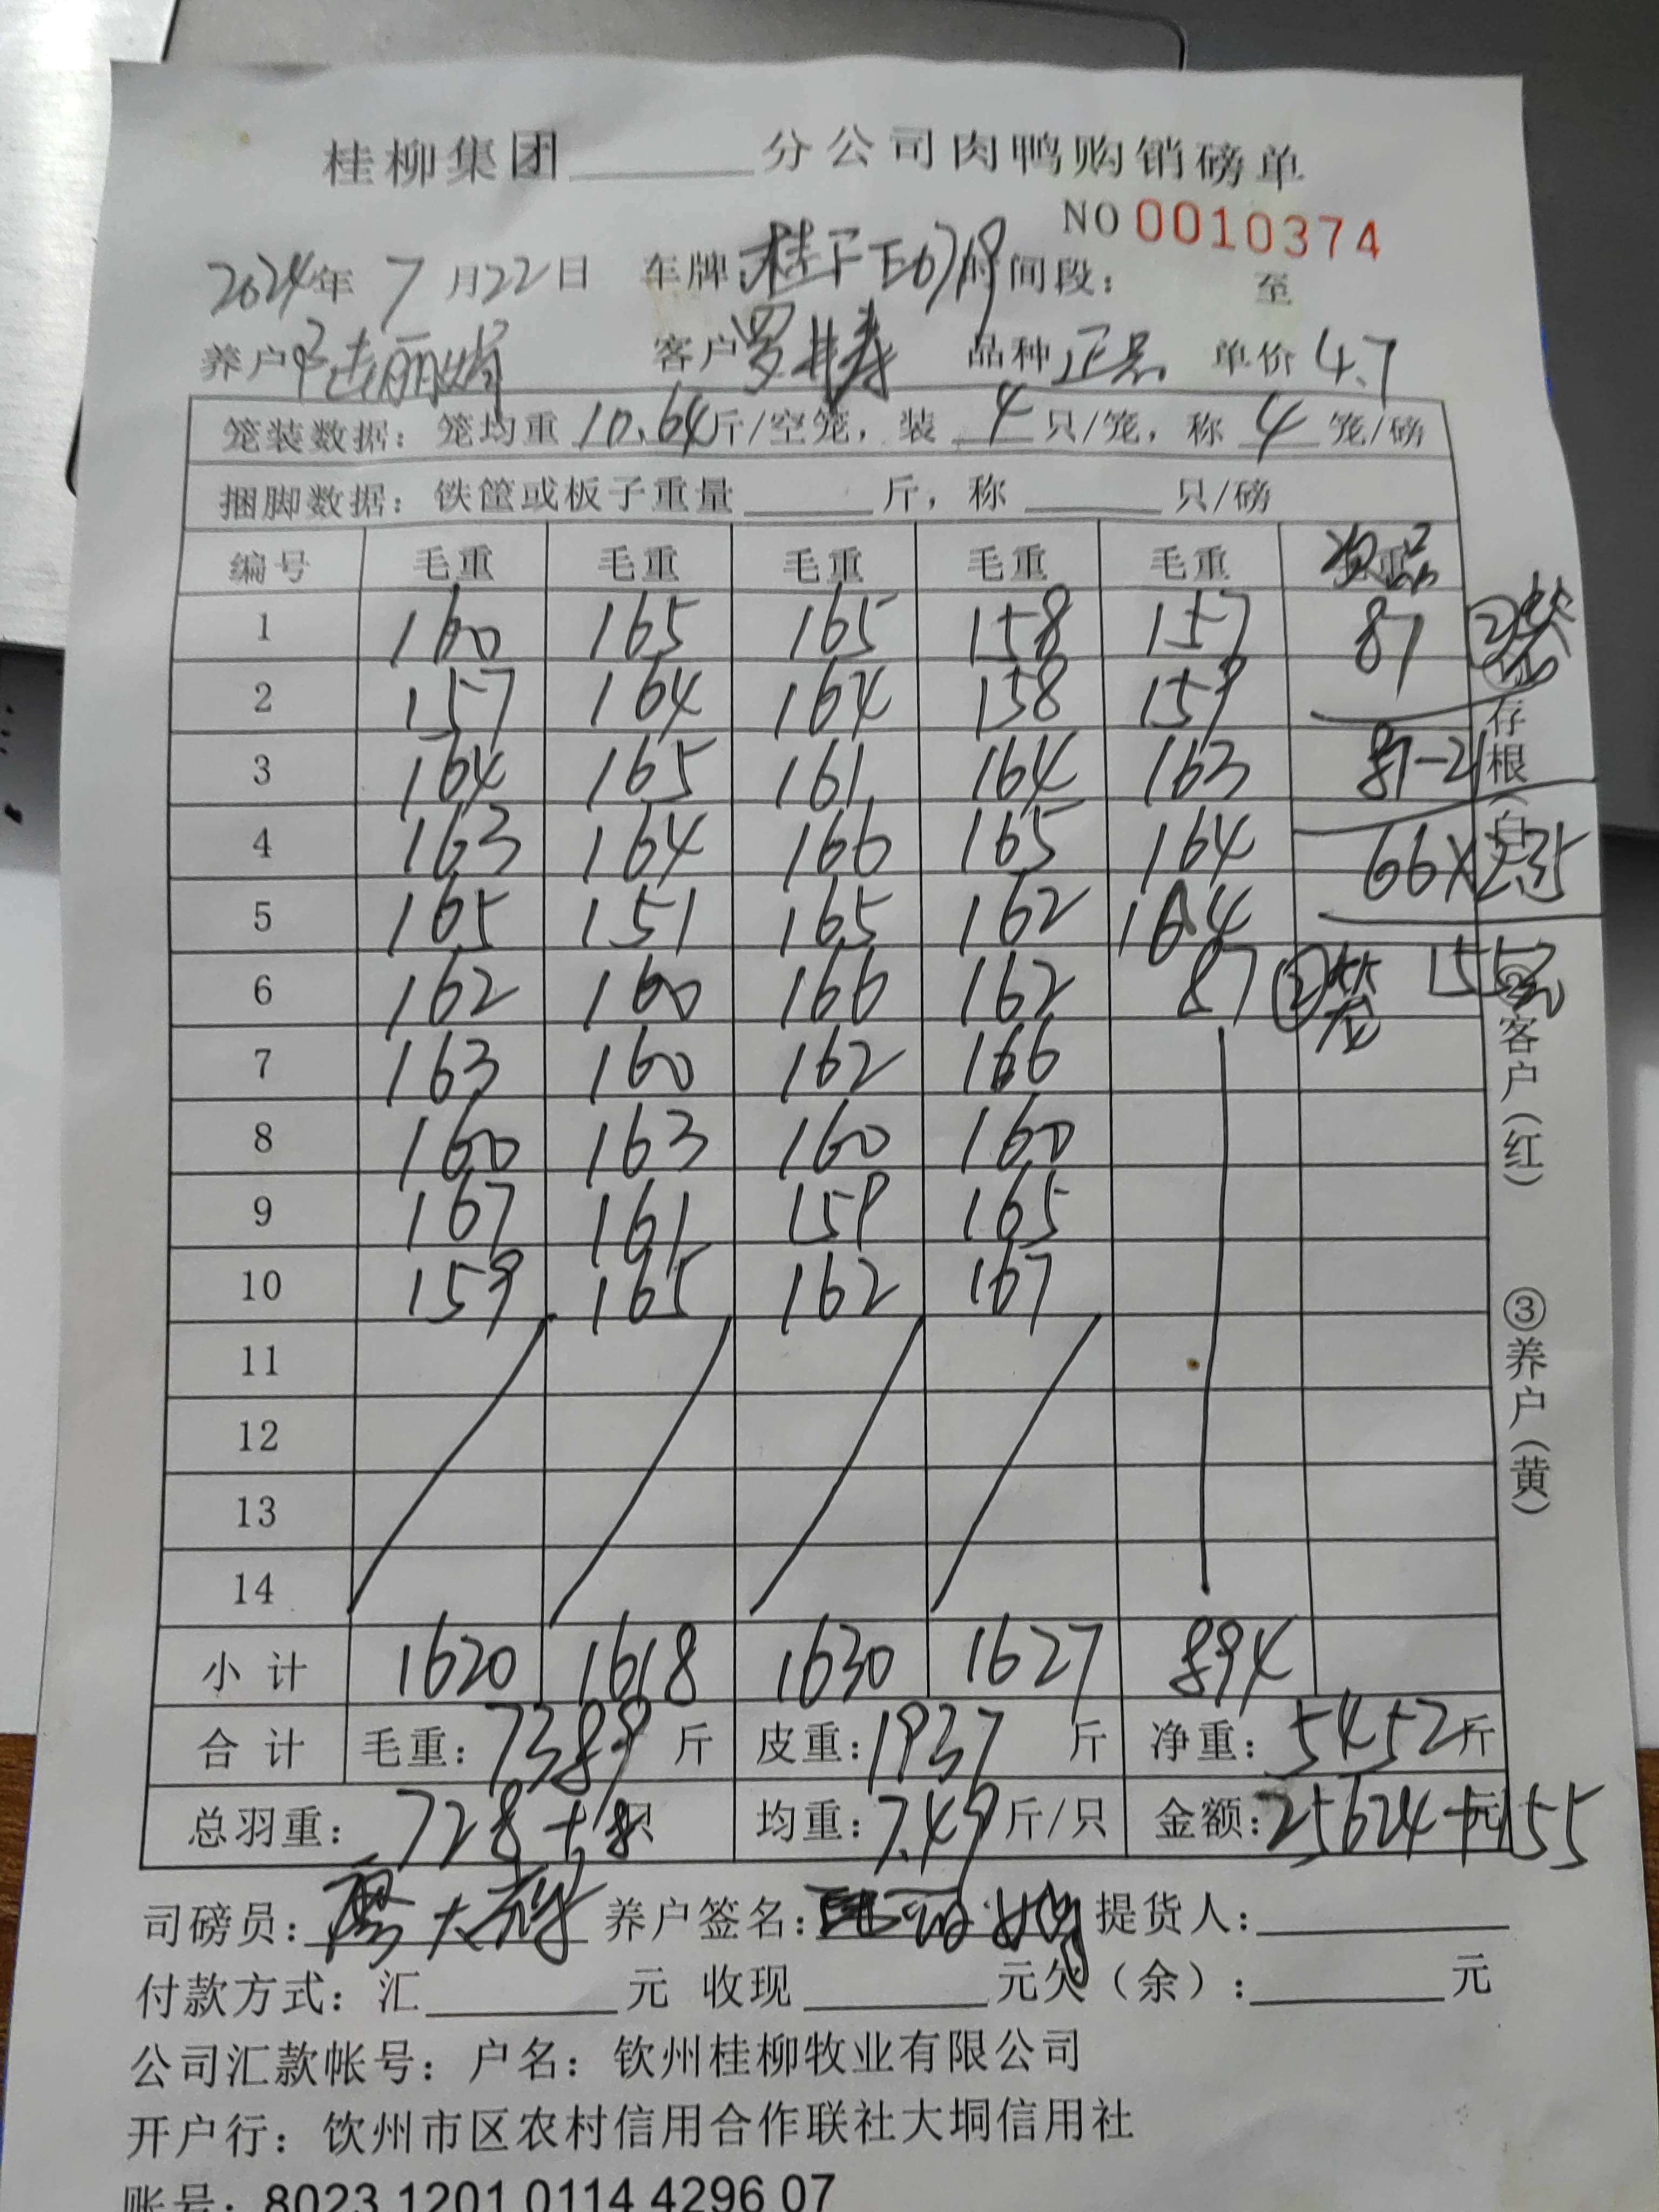 桂柳集团______分公司肉鸭购销磅单
NO 0010374
2024年 7 月22日 车牌:桂 时间段: 至
养户 丽娟 客户罗 品种正品 单价4.7
笼装数据:笼均重 10.64斤/空笼,装 4 只/笼,称 4 笼/磅
捆脚数据:铁筐或板子重量______斤,称______只/磅
编号 毛重 毛重 毛重 毛重 毛重 次品
1 160 165 165 158 157 87 ②
2 157 164 164 158 159
3 164 165 161 164 163 87-21
4 163 164 166 165 164 66×2.35
5 165 151 165 162 164
6 162 160 166 162 87 ②笼 155元
7 163 160 162 166
8 160 163 160 160
9 167 161 159 165
10 159 165 162 167
11
12
13
14
小计 1620 1618 1630 1627 894
合计 毛重:7389 斤 皮重:1937 斤 净重:5452斤
总羽重:728+8只 均重:7.49斤/只 金额:25624+155元
司磅员: 大 养户签名: 丽娟 提货人:______
付款方式:汇______元 收现______元欠(余):______元
公司汇款帐号:户名:钦州桂柳牧业有限公司
开户行:钦州市区农村信用合作联社大垌信用社
账号:8023 1201 0114 4296 07
存根(白)
客户(红)
③养户(黄)